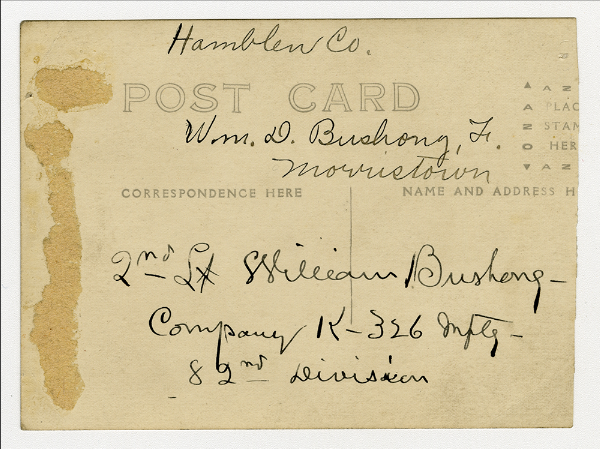 Hamblen Co.
POST CARD
▲ A Z
A PLAC
Z STAM
O HER
▼ A Z
Wm. D. Bushong, F.
Morristown
CORRESPONDENCE HERE
NAME AND ADDRESS H
2nd Lt William Bushong-
Company K-326 Infty-
82nd Division